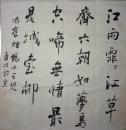 江雨霏霏江草
齊六朝如夢鳥
空啼無情最
是臺城柳
依舊煙籠十里堤